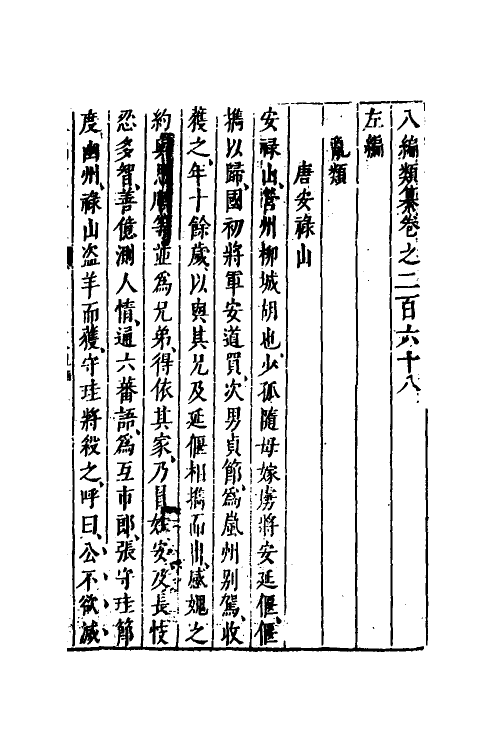 八編類纂卷之二百六十八
左編
亂類
唐安祿山
安祿山營州柳城胡也少孤隨母嫁虜將安延偃偃
攜以歸國初將軍安道買次男貞節爲嵐州別駕收
獲之年十餘歲以與其兄及延偃相攜而出感愧之
約與思順等並爲兄弟得依其家乃冒姓安及長忮
忍多智善億測人情通六蕃語爲互市郎張守珪節
度幽州祿山盜羊而獲守珪將殺之呼曰公不欲滅